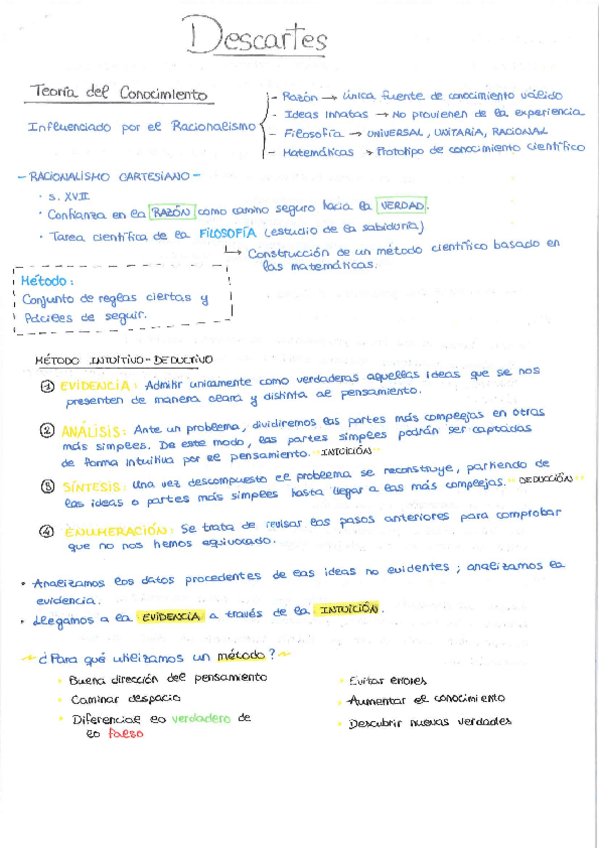 Descartes
Teoría del Conocimiento
Influenciado por el Racionalismo
- Razón → única fuente de conocimiento válido
- Ideas Innatas → No provienen de la experiencia
- Filosofía → UNIVERSAL, UNITARIA, RACIONAL
- Matemáticas → Prototipo de conocimiento científico
- RACIONALISMO CARTESIANO -
· S. XVII
· Confianza en la RAZÓN como camino seguro hacia la VERDAD.
· Tarea científica de la FILOSOFÍA (estudio de la sabiduría)
↳ Construcción de un método científico basado en
las matemáticas.
Método:
Conjunto de reglas ciertas y
fáciles de seguir.
MÉTODO INTUITIVO-DEDUCTIVO
① EVIDENCIA: Admitir unicamente como verdaderas aquellas ideas que se nos
presenten de manera clara y distinta al pensamiento.
② ANÁLISIS: Ante un problema, dividiremos las partes más complejas en otras
más simples. De este modo, las partes simples podrán ser captadas
de forma intuitiva por el pensamiento. "INTUICIÓN"
③ SÍNTESIS: Una vez descompuesto el problema se reconstruye, partiendo de
las ideas o partes más simples hasta llegar a las más complejas. "DEDUCCIÓN"
④ ENUMERACIÓN: Se trata de revisar los pasos anteriores para comprobar
que no nos hemos equivocado.
· Analizamos los datos procedentes de las ideas no evidentes; analizamos la
evidencia.
· Llegamos a la EVIDENCIA a través de la INTUICIÓN.
~ ¿Para qué utilizamos un método? ~
· Buena dirección del pensamiento
· Caminar despacio
· Diferenciar lo verdadero de
lo falso
· Evitar errores
· Aumentar el conocimiento
· Descubrir nuevas verdades